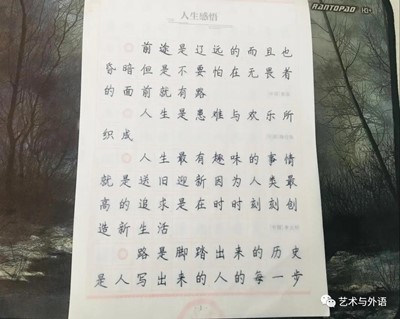 RANTOPAD
人生感悟
前途是辽远的而且也
昏暗但是不要怕在无畏者
的面前就有路
人生是患难与欢乐所
织成
人生最有趣味的事情
就是送旧迎新因为人类最
高的追求是在时时刻刻创
造新生活
路是脚踏出来的历史
是人写出来的人的每一步
艺术与外语